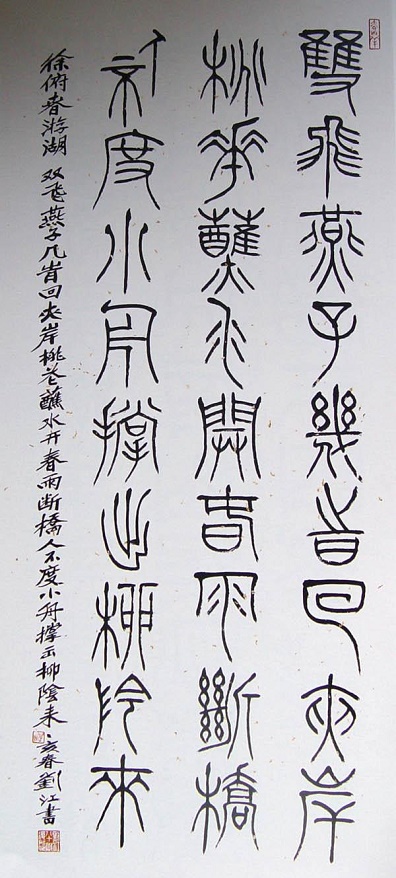 雙飛燕子幾時回夾岸
桃花蘸水開春雨斷橋
人不度小舟撐出柳陰來
徐俯春游湖 双飞燕子几旹回夾岸桃花蘸水开春雨断橋人不度小舟撑出柳陰来 亥春劉江書